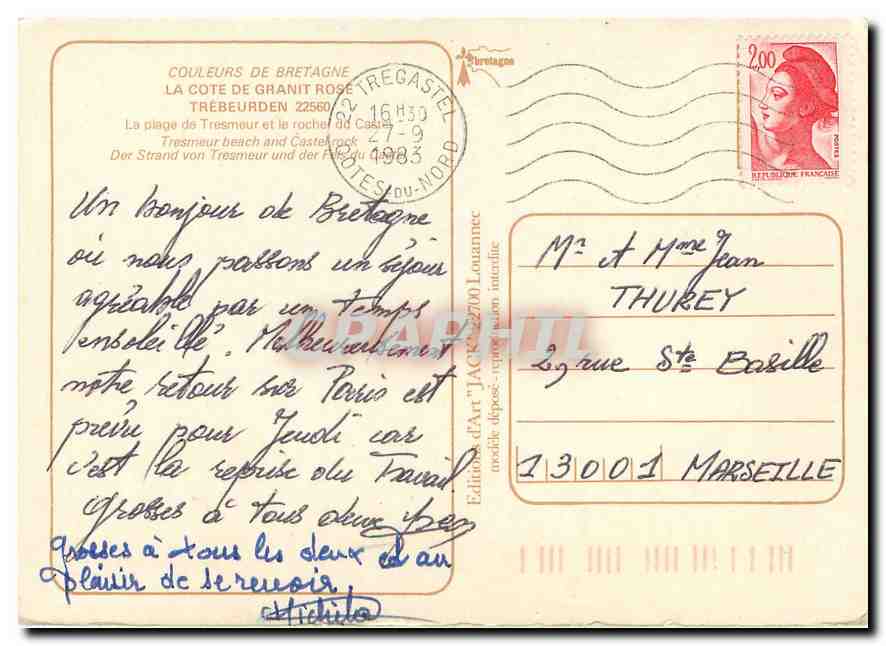 COULEURS DE BRETAGNE
LA COTE DE GRANIT ROSE
TRÉBEURDEN 22560
La plage de Tresmeur et le rocher du Castel
Tresmeur beach and Castel rock
Der Strand von Tresmeur und der Fels du Castel
Un bonjour de Bretagne
où nous passons un séjour
agréable par un temps
ensoleillé. Malheureusement
notre retour sur Paris est
prévu pour Jeudi car
c'est la reprise du Travail
Grosses à tous deux
Grosses à tous les deux et au
plaisir de se revoir.
bretagne
22 TREGASTEL
16H30
27-9
1983
COTES-DU-NORD
Editions d'Art "JACK" 22700 Louannec
modèle déposé - reproduction interdite
CPAPHIL
2,00
POSTES
REPUBLIQUE FRANÇAISE
Mr A Mme Jean
THUREY
29 rue Ste Basille
13001 MARSEILLE